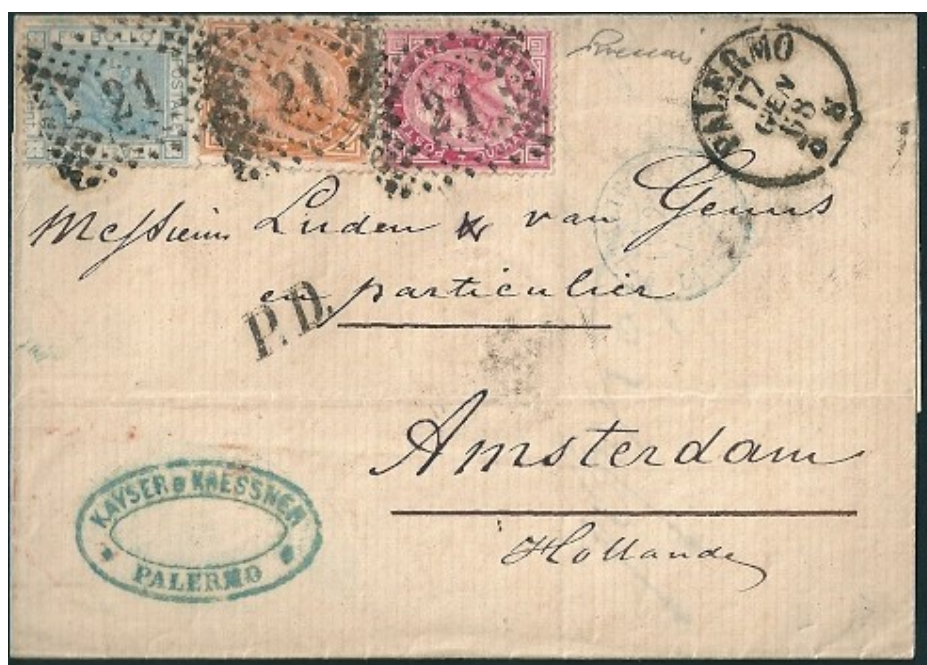 FR. BOLLO POSTALE
21
21
21
PALERMO
17
GEN
68
3 S
Messieurs Luden & van Geuns
en particulier
P.D.
Amsterdam
Hollande
KAYSER & KRESSNER
PALERMO